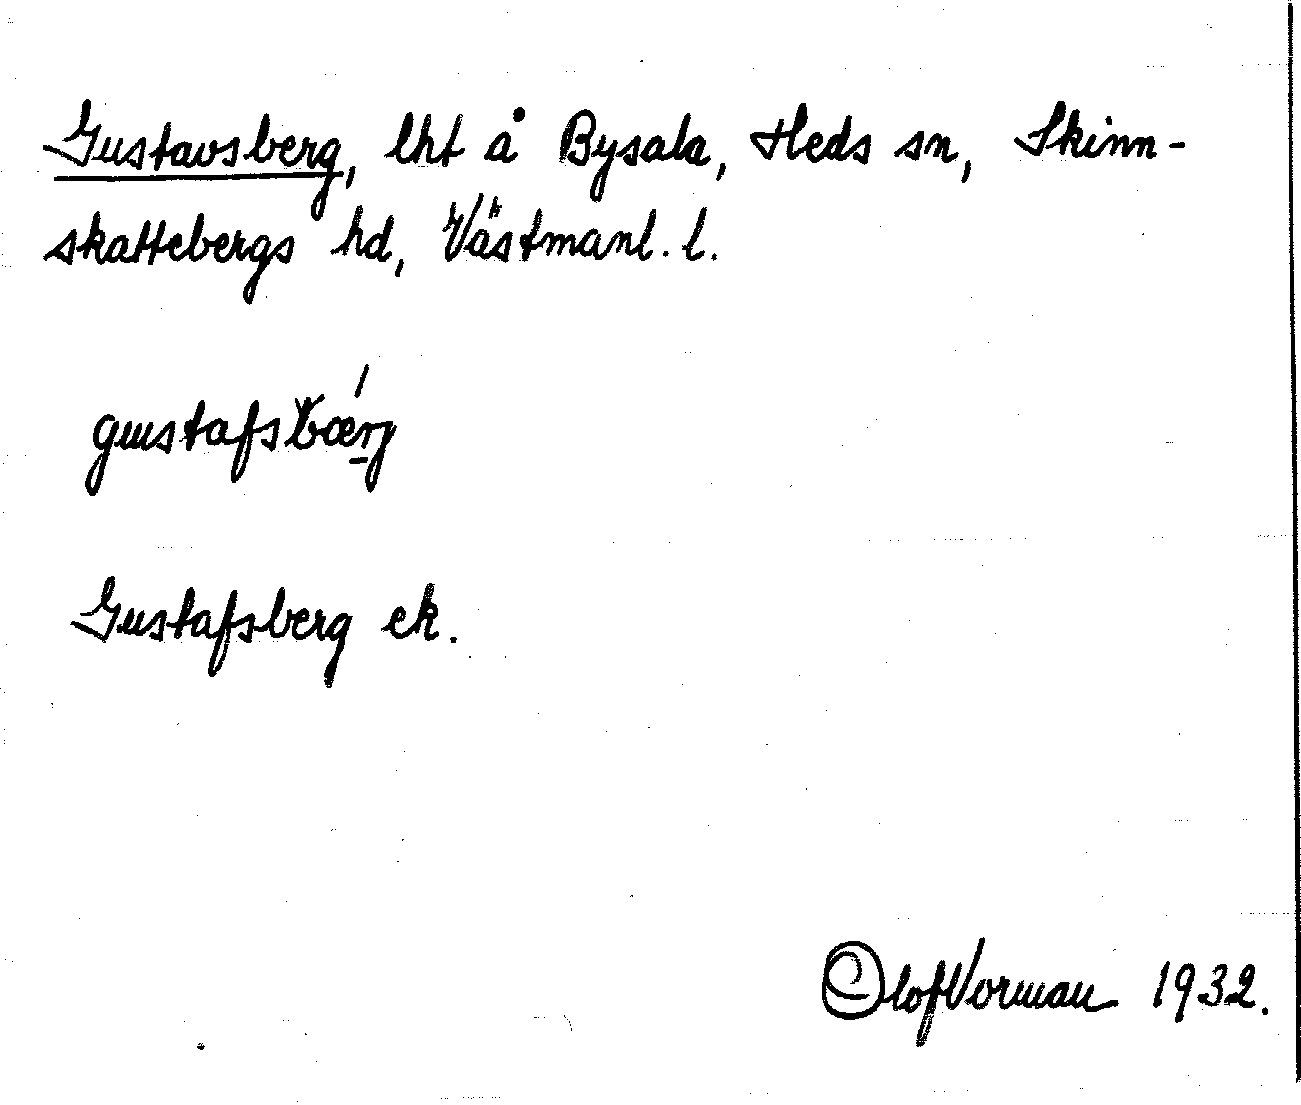 Gustavsberg, lht å Bysala, Heds sn, Skinn-
skattebergs hd, Västmanl. l.
gustafsbærj
Gustafsberg ek.
Olof Vorman 1932.